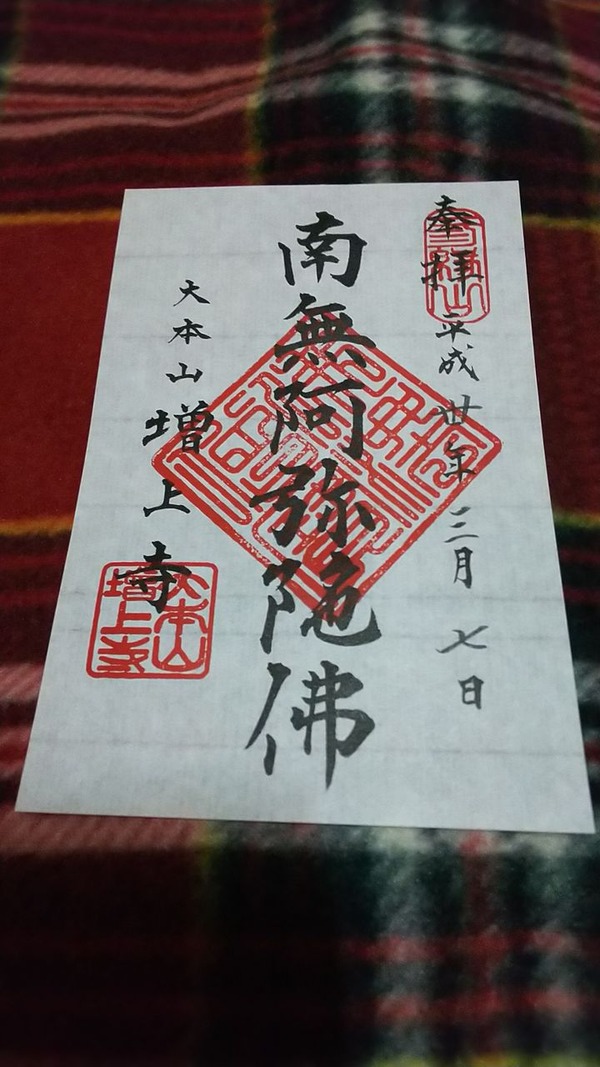 奉拝
平成卅年三月七日
南無阿弥陀佛
大本山
増上寺
大本山
増上寺